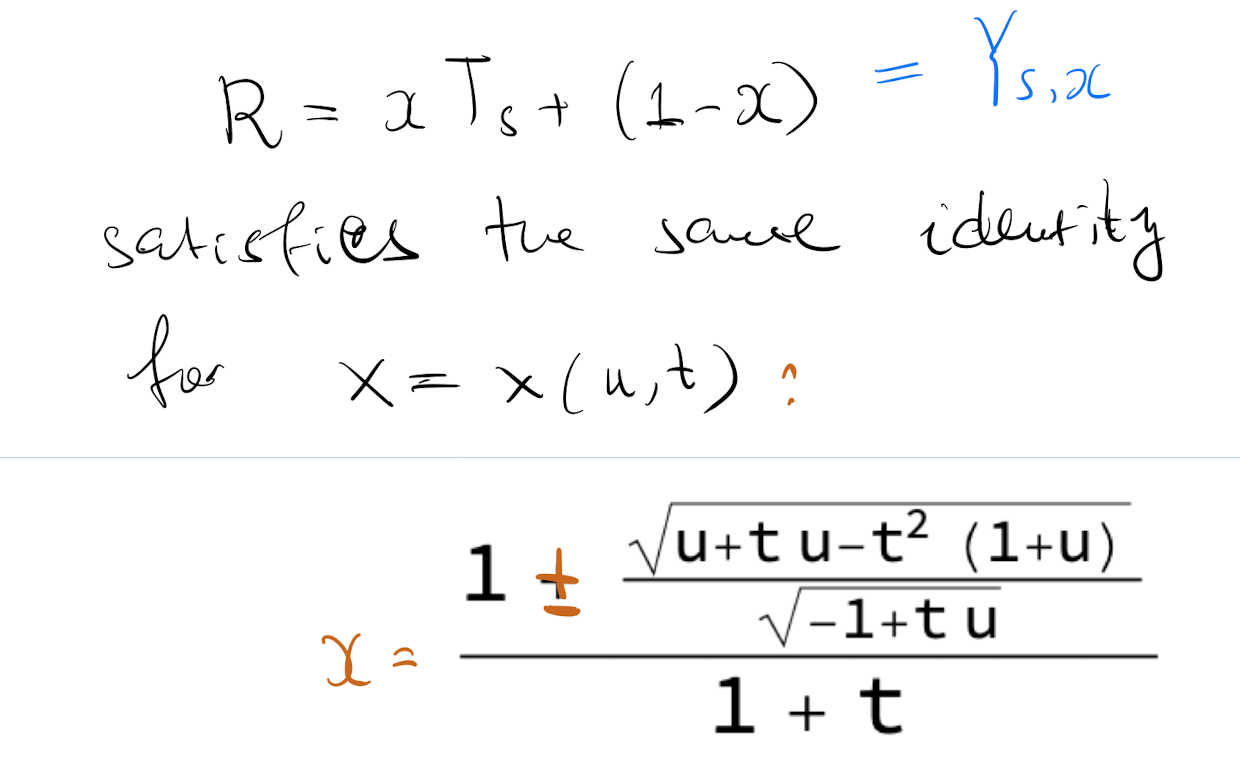 R = x T_s + (1-x) = Y_{s,x}
satisfies the same identity
for x = x(u,t) :
x = (1 ± √(u+t u-t² (1+u)) / √(-1+t u)) / (1 + t)